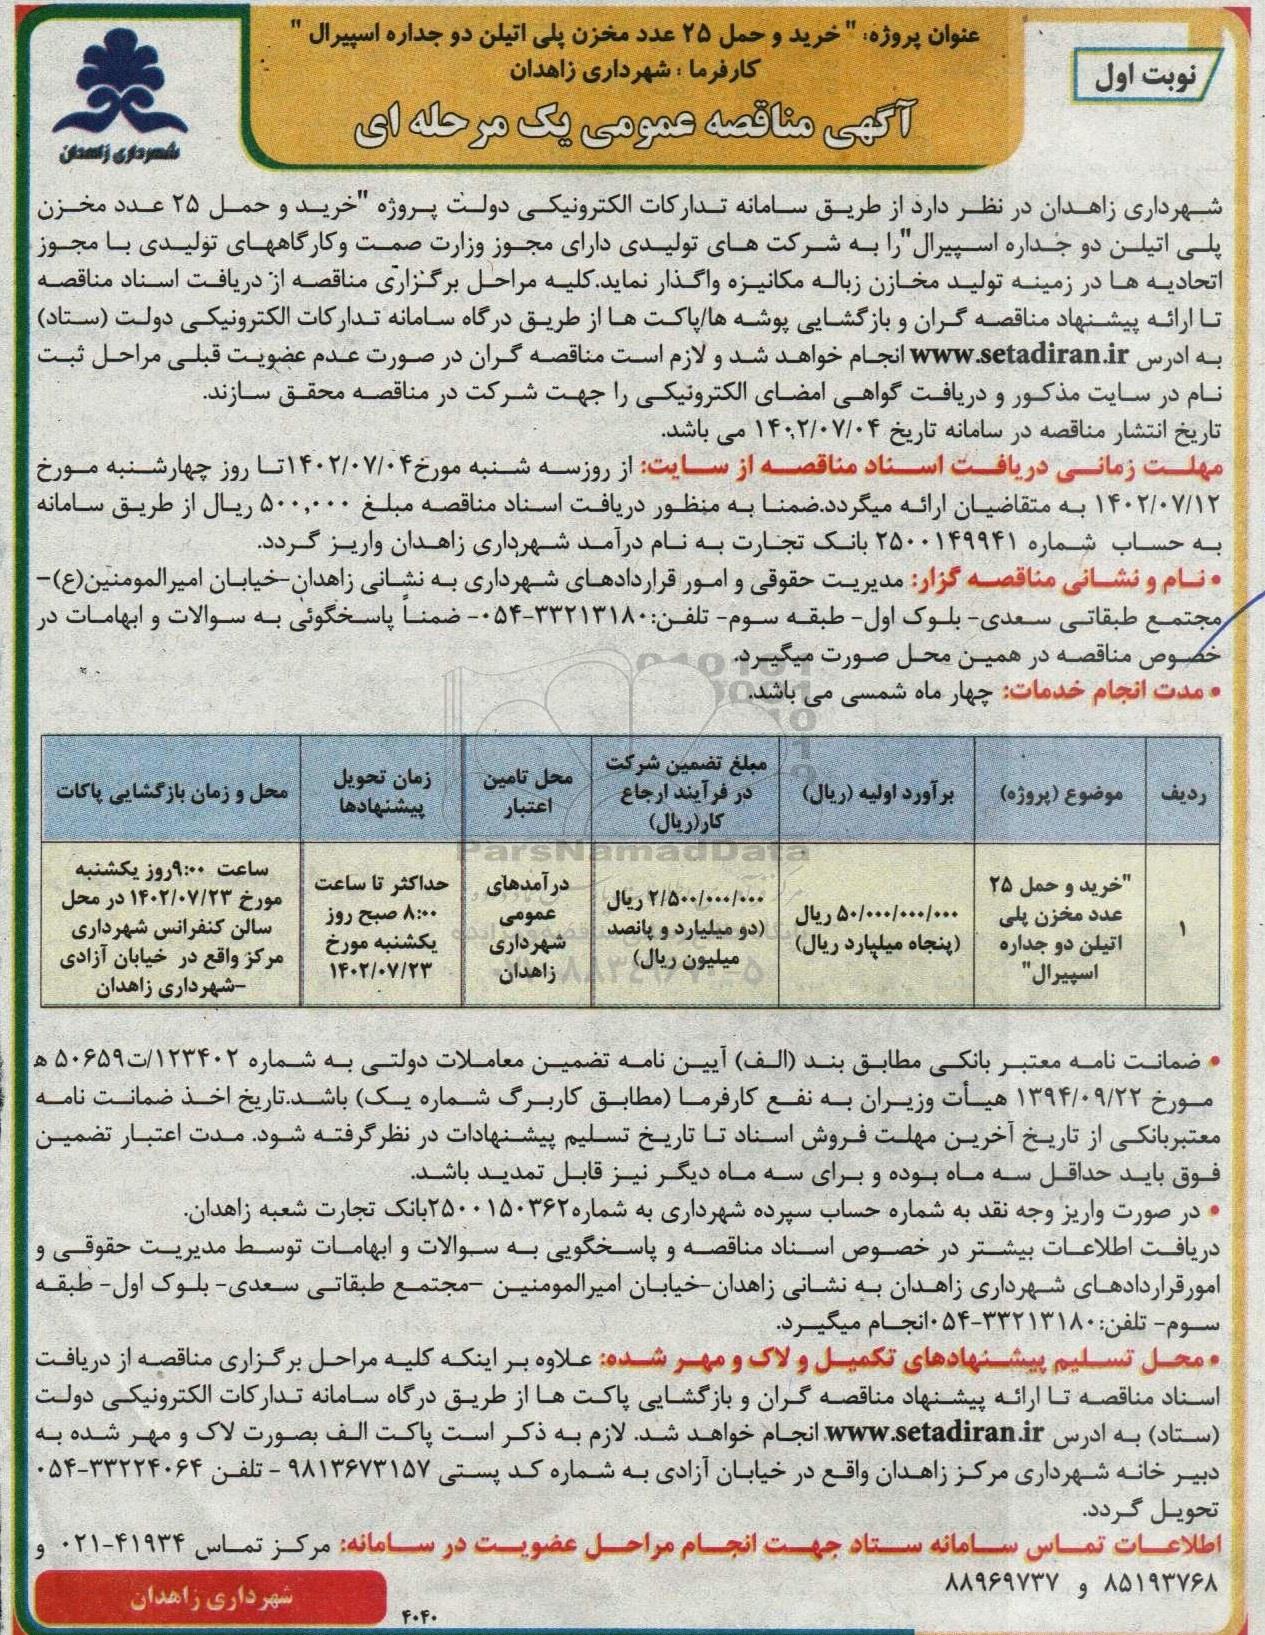 عنوان پروژه: " خرید و حمل ۲۵ عدد مخزن پلی اتیلن دو جداره اسپیرال "
کارفرما : شهرداری زاهدان
آگهی مناقصه عمومی یک مرحله ای
نوبت اول
شهرداری زاهدان
شهرداری زاهدان در نظر دارد از طریق سامانه تدارکات الکترونیکی دولت پروژه "خرید و حمل ۲۵ عدد مخزن
پلی اتیلن دو جداره اسپیرال"را به شرکت های تولیدی دارای مجوز وزارت صمت وکارگاههای تولیدی با مجوز
اتحادیه ها در زمینه تولید مخازن زباله مکانیزه واگذار نماید.کلیه مراحل برگزاری مناقصه از دریافت اسناد مناقصه
تا ارائه پیشنهاد مناقصه گران و بازگشایی پوشه ها/پاکت ها از طریق درگاه سامانه تدارکات الکترونیکی دولت (ستاد)
به ادرس www.setadiran.ir انجام خواهد شد و لازم است مناقصه گران در صورت عدم عضویت قبلی مراحل ثبت
نام در سایت مذکور و دریافت گواهی امضای الکترونیکی را جهت شرکت در مناقصه محقق سازند.
تاریخ انتشار مناقصه در سامانه تاریخ ۱۴۰۲/۰۷/۰۴ می باشد.
مهلت زمانی دریافت اسناد مناقصه از سایت: از روزسه شنبه مورخ۱۴۰۲/۰۷/۰۴تا روز چهارشنبه مورخ
۱۴۰۲/۰۷/۱۲ به متقاضیان ارائه میگردد.ضمنا به منظور دریافت اسناد مناقصه مبلغ ۵۰۰,۰۰۰ ریال از طریق سامانه
به حساب شماره ۲۵۰۰۱۴۹۹۴۱ بانک تجارت به نام درآمد شهرداری زاهدان واریز گردد.
• نام و نشانی مناقصه گزار: مدیریت حقوقی و امور قراردادهای شهرداری به نشانی زاهدان-خیابان امیرالمومنین(ع)-
مجتمع طبقاتی سعدی- بلوک اول- طبقه سوم- تلفن:۳۳۲۱۳۱۸۰-۰۵۴- ضمناً پاسخگوئی به سوالات و ابهامات در
خصوص مناقصه در همین محل صورت میگیرد.
• مدت انجام خدمات: چهار ماه شمسی می باشد.
ردیف
موضوع (پروژه)
برآورد اولیه (ریال)
مبلغ تضمین شرکت
در فرآیند ارجاع
کار(ریال)
محل تامین
اعتبار
زمان تحویل
پیشنهادها
محل و زمان بازگشایی پاکات
۱
"خرید و حمل ۲۵
عدد مخزن پلی
اتیلن دو جداره
اسپیرال"
۵۰/۰۰۰/۰۰۰/۰۰۰ ریال
(پنجاه میلیارد ریال)
۲/۵۰۰/۰۰۰/۰۰۰ ریال
(دو میلیارد و پانصد
میلیون ریال)
درآمدهای
عمومی
شهرداری
زاهدان
حداکثر تا ساعت
۸:۰۰ صبح روز
یکشنبه مورخ
۱۴۰۲/۰۷/۲۳
ساعت ۹:۰۰روز یکشنبه
مورخ ۱۴۰۲/۰۷/۲۳ در محل
سالن کنفرانس شهرداری
مرکز واقع در خیابان آزادی
-شهرداری زاهدان
ParsNamadData
• ضمانت نامه معتبر بانکی مطابق بند (الف) آیین نامه تضمین معاملات دولتی به شماره ۱۲۳۴۰۲/ت۵۰۶۵۹ ه
مورخ ۱۳۹۴/۰۹/۲۲ هیأت وزیران به نفع کارفرما (مطابق کاربرگ شماره یک) باشد.تاریخ اخذ ضمانت نامه
معتبربانکی از تاریخ آخرین مهلت فروش اسناد تا تاریخ تسلیم پیشنهادات در نظرگرفته شود. مدت اعتبار تضمین
فوق باید حداقل سه ماه بوده و برای سه ماه دیگر نیز قابل تمدید باشد.
• در صورت واریز وجه نقد به شماره حساب سپرده شهرداری به شماره۲۵۰۰۱۵۰۳۶۲بانک تجارت شعبه زاهدان.
دریافت اطلاعات بیشتر در خصوص اسناد مناقصه و پاسخگویی به سوالات و ابهامات توسط مدیریت حقوقی و
امورقراردادهای شهرداری زاهدان به نشانی زاهدان-خیابان امیرالمومنین -مجتمع طبقاتی سعدی- بلوک اول- طبقه
سوم- تلفن:۳۳۲۱۳۱۸۰-۰۵۴انجام میگیرد.
• محل تسلیم پیشنهادهای تکمیل و لاک و مهر شده: علاوه بر اینکه کلیه مراحل برگزاری مناقصه از دریافت
اسناد مناقصه تا ارائه پیشنهاد مناقصه گران و بازگشایی پاکت ها از طریق درگاه سامانه تدارکات الکترونیکی دولت
(ستاد) به ادرس www.setadiran.ir انجام خواهد شد. لازم به ذکر است پاکت الف بصورت لاک و مهر شده به
دبیر خانه شهرداری مرکز زاهدان واقع در خیابان آزادی به شماره کد پستی ۹۸۱۳۶۷۳۱۵۷ - تلفن ۳۳۲۲۴۰۶۴-۰۵۴
تحویل گردد.
اطلاعات تماس سامانه ستاد جهت انجام مراحل عضویت در سامانه: مرکز تماس ۴۱۹۳۴-۰۲۱ و
۸۵۱۹۳۷۶۸ و ۸۸۹۶۹۷۳۷
شهرداری زاهدان
۴۰۴۰